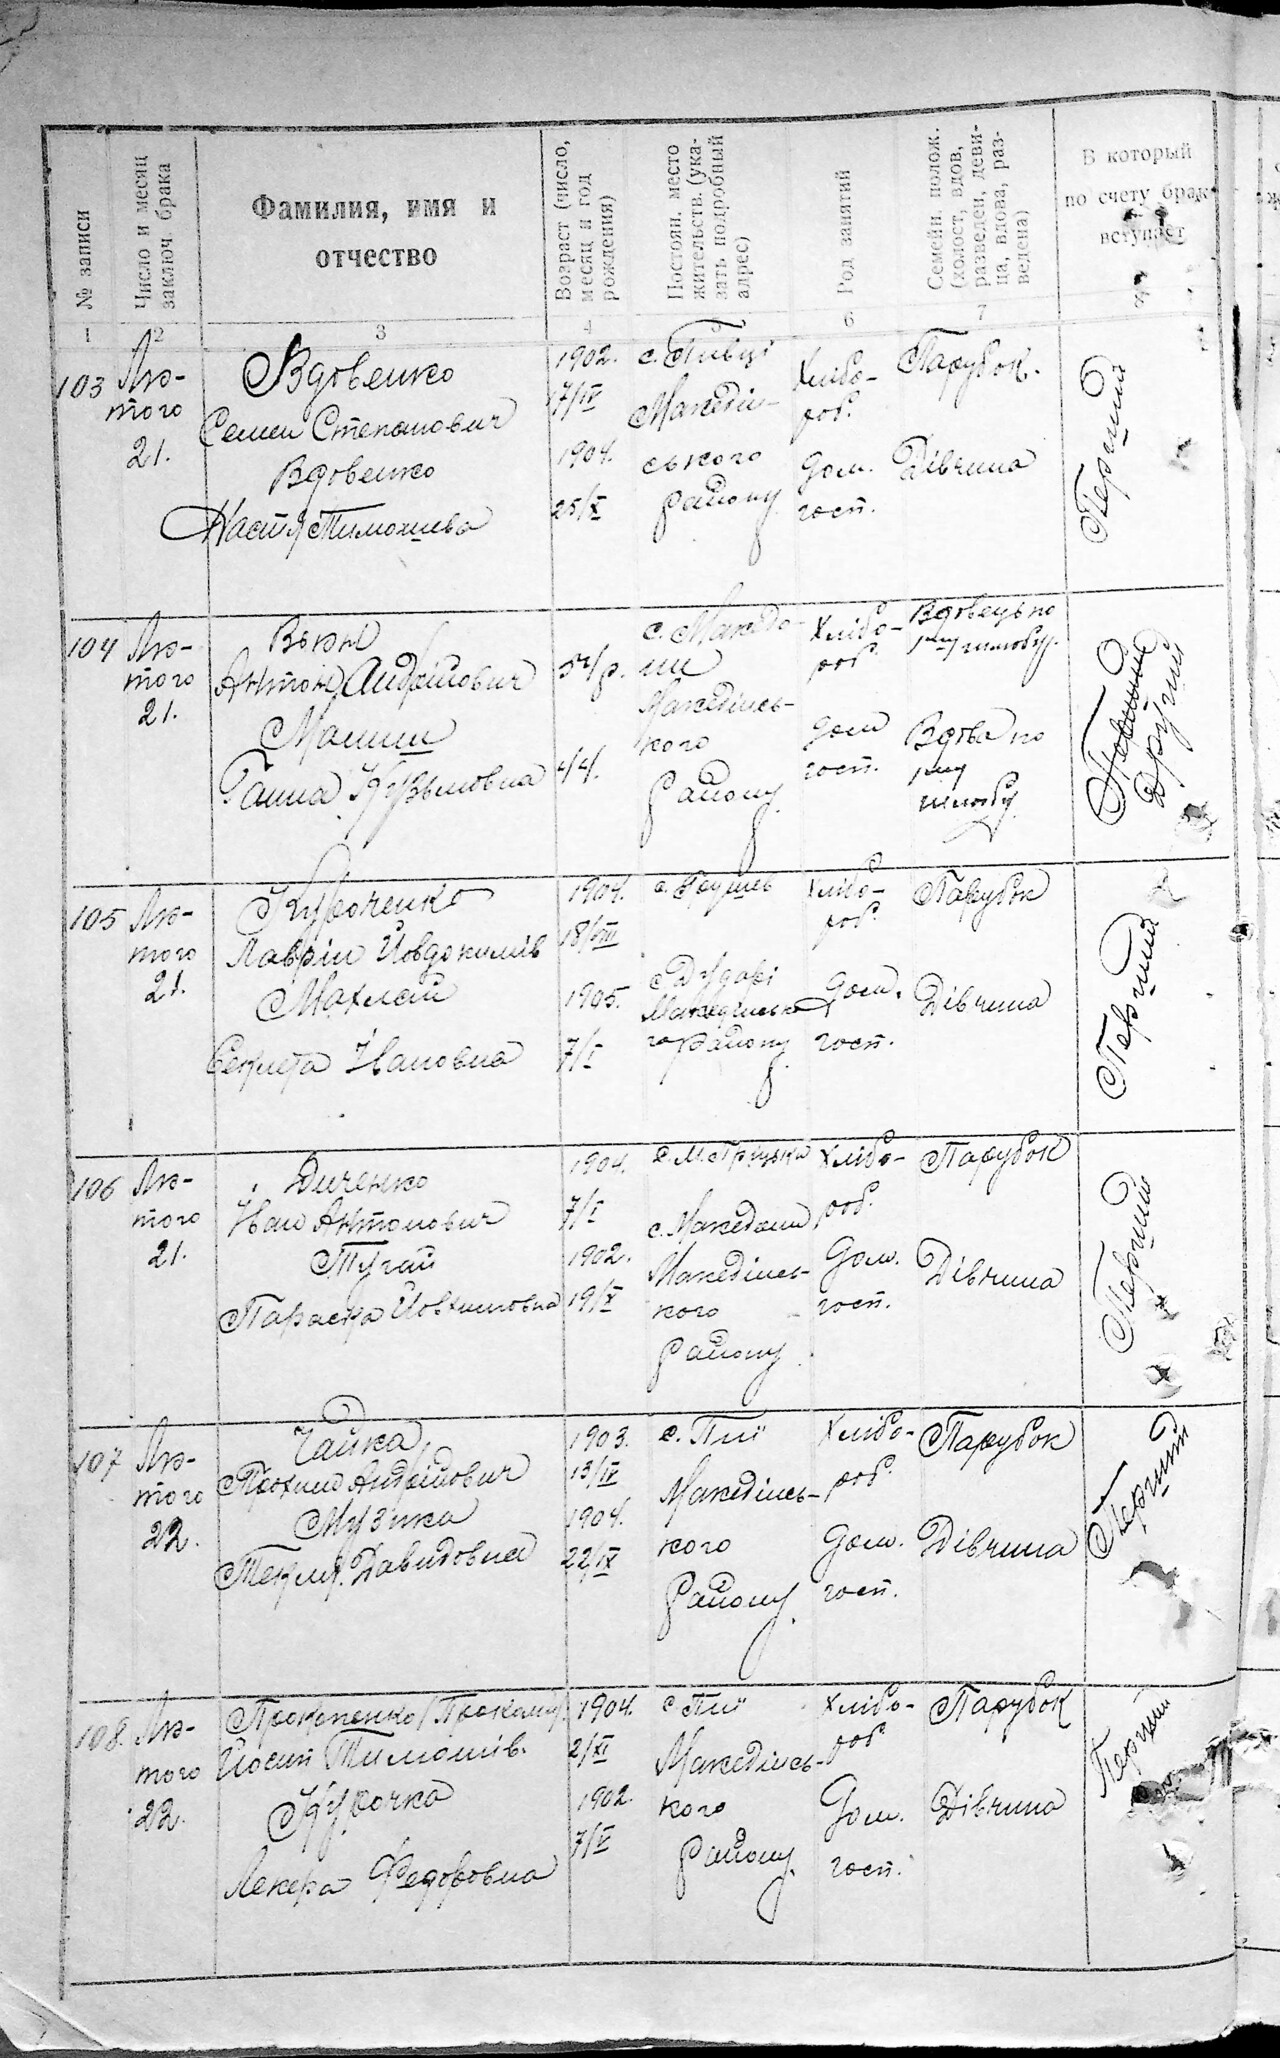 № записи
Число и месяц
заключ. брака
Фамилия, имя и
отчество
Возраст (число,
месяц и год
рождения)
Постоян. место
жительств. (ука-
зать подробный
адрес)
Род занятий
Семейн. полож.
(холост, вдов,
разведен, деви-
ца, вдова, раз-
ведена)
В который
по счету брак
вступает
1
2
3
4
6
7
103
Лю-
того
21.
Вдовенко
Семен Степанович
Вдовенко
Настя Тимошева
1902.
7/IV
1904.
25/X
с. Пивці
Македін-
ського
району
Хлібо-
роб.
Дом.
госп.
Парубок.
Дівчина
Перший
104
Лю-
того
21.
Антон Андрійович
Ганна Кузьмовна
44.
с. Македо-
ни
Македінсь-
кого
Району
Хлібо-
роб.
Дом
госп.
Вдовець по
шлюбу.
Вдова по
шлюбу
Другий
105
Лю-
того
21.
Курченко
Лаврін Йовдокимів
Махлай
Секлета Ивановна
1904.
18/VIII
1905.
7/I
с. Грушів
с. Дударі
Македінсько
го Району
Хлібо-
роб.
Дом.
госп.
Парубок
Дівчина
Перший
106
Лю-
того
21.
Диченко
Іван Антонович
Тугай
Параска Йовхимовна
1904.
7/I
1902.
19/X
с. Македони
Македінсь-
кого
Району
Хлібо-
роб.
Дом.
госп.
Парубок
Дівчина
Перший
107
Лю-
того
22.
Чайка
Прохим Андрійович
Музика
Текля Давидовна
1903.
13/IV
1904.
22/IX
с. Пії
Македінсь-
кого
Району
Хлібо-
роб.
Дом.
госп.
Парубок
Дівчина
Перший
108.
Лю-
того
22.
Прокопенко
Йосип Тимошів.
Курочка
Лекера Федоровна
1904.
2/XI
1902.
7/V
с. Пії
Македінсь-
кого
Району
Хлібо-
роб.
Дом.
госп.
Парубок
Дівчина
Перший